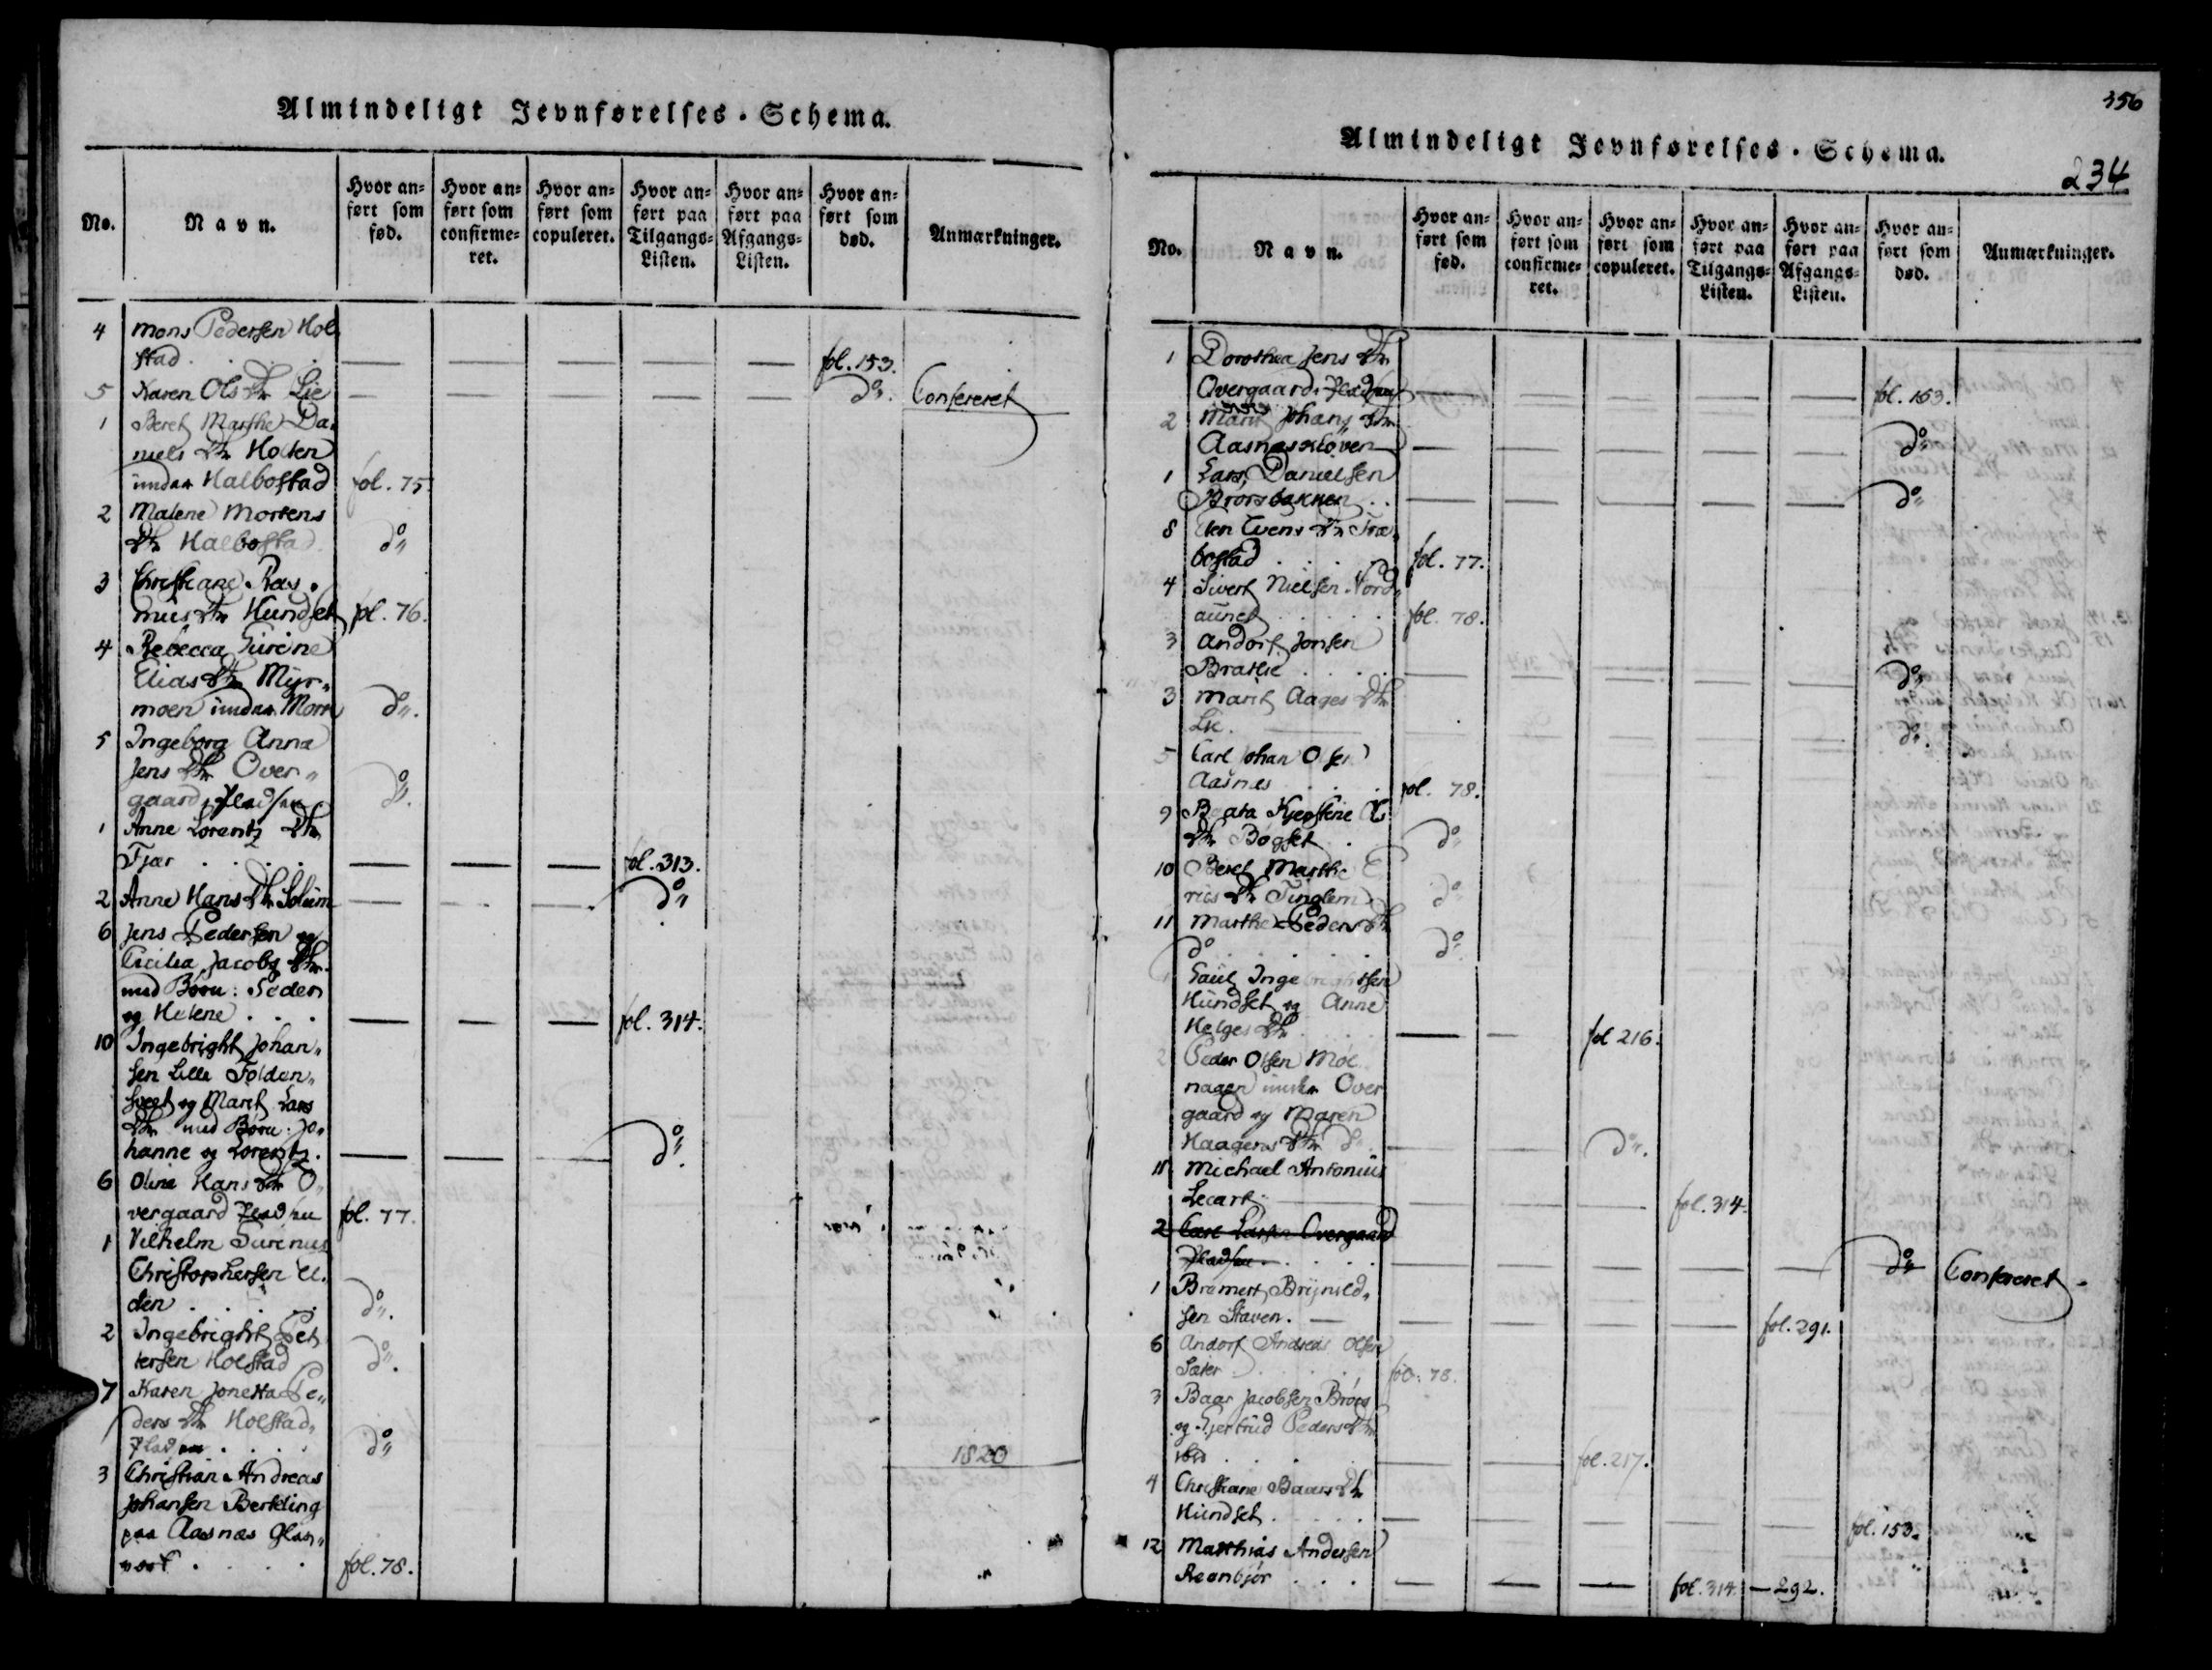 Almindeligt Jevnførelses-Schema.
No.
Navn.
Hvor anført som fød.
Hvor anført som confirmeret.
Hvor anført som copuleret.
Hvor anført paa Tilgangs-Listen.
Hvor anført paa Afgangs-Listen.
Hvor anført som død.
Anmærkninger.
4 Mons Pedersen Hol
stad . . . . — — — — — fol. 153.
5 Karen Ols Dtr Lie — — — — — do. Confereret
1 Beret Marthe Da-
niels Dtr Holten
under Halbostad fol. 75
2 Malene Mortens
Dtr Halbostad do
3 Christiane Ras-
mus Dtr Hundset fol. 76.
4 Rebecca Sirine
Elias Dtr Myr-
moen under Morre do.
5 Ingeborg Anna
Jens Dtr Over-
gaards Pladsen do.
1 Anne Lorentz Dtr
Fjær . . . . — — — fol. 313.
2 Anne Hans Dtr Solum — — — do
6 Jens Pedersen og
Cicilia Jacobs Dtr
med Børn: Peder
og Helene . . . — — — fol. 314.
10 Ingebright Johan-
sen Lille Folden-
svedt og Marit Lars
Dtr med Børn: Jo-
hanne og Lorentz. — — — do.
6 Oline Hans Dtr O-
vergaard Pladsen fol. 77.
1 Vilhelm Surinus
Christophersen El-
den . . . . do.
2 Ingebright Pet
tersen Holstad do.
7 Karen Jonetta Pe-
ders Dtr Holstad-
Pladsen . . . . do
1820
3 Christian Andreas
Johansen Bertling
paa Aasnæs Glas-
værk . . . . fol. 78.
356
Almindeligt Jevnførelses-Schema.
234
No.
Navn.
Hvor anført som fød.
Hvor anført som confirmeret.
Hvor anført som copuleret.
Hvor anført paa Tilgangs-Listen.
Hvor anført paa Afgangs-Listen.
Hvor anført som død.
Anmærkninger.
1 Dorothea Jens Dtr
Overgaards Pladsen — — — — — fol. 153.
2 Marit Johans Dtr
Aasnæskloven — — — — — do
1 Lars Danielsen
Brørsbakken . . — — — — — do
8 Elen Evens Dtr Træ-
bostad . . . fol. 77.
4 Sivert Nielsen Nord-
aunet . . . . . fol. 78.
3 Andor Jonsen
Bratlie . . . . — — — — — do
3 Marit Aages Dtr
Lie. — — — — — do.
5 Carl Johan Olsen
Aasnæs . . . . fol. 78.
9 Beata Kjerstine
Dtr Bøgset . . do
10 Beret Marthe E
rics Dtr Tinglem do
11 Marthe Peders Dtr
do . . . . . do
Paul Ingebrightsen
Hundset og Anne
Helges Dtr . . . — — fol 216.
2 Peder Olsen Møl
nagen under Over
gaard og Maren
Haagens Dtr do. — — do.
11 Michael Antonius
Lecart — — — — fol. 314.
2 Carl Larsen Overgaard
Pladsen . . . . . — — — — — do Confereret
1 Bramert Brynild-
sen Staven. — — — — — fol. 291.
6 Andor Andreas Olsen
Sæter . . . . . fol. 78.
3 Baar Jacobsen Brørs
og Gjertrud Peders Dtr
ibid . . . . — — fol. 217.
4 Christiane Baars Dtr
Hundset . . . . . — — — — — fol. 153.
12 Matthias Andersen
Reanbjør . . . — — — fol. 314 — 292.